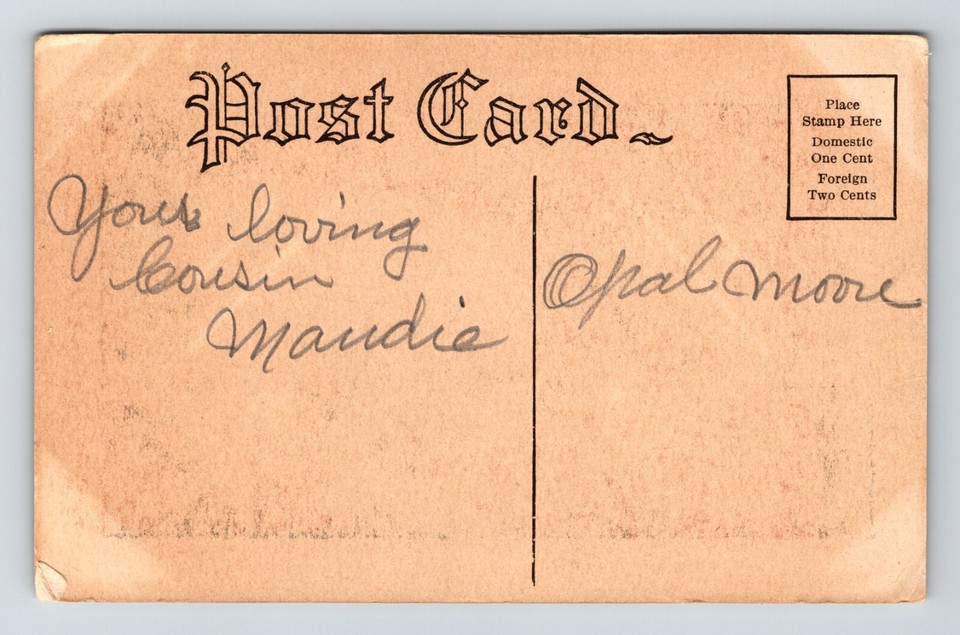 Post Card.
Place
Stamp Here
Domestic
One Cent
Foreign
Two Cents
Your loving
Cousin
Maudie
Opal Moore